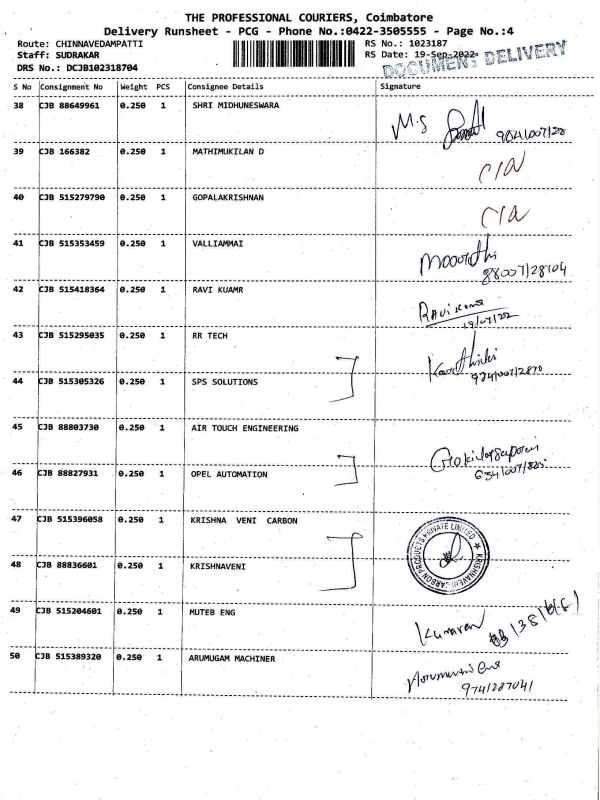 THE PROFESSIONAL COURIERS, Coimbatore
Delivery Runsheet - PCG - Phone No.:0422-3505555 - Page No.:4
Route: CHINNAVEDAMPATTI RS No.: 1023187
Staff: SUDRAKAR RS Date: 19-Sep-2022
DRS No.: DCJB102318704 DOCUMENT DELIVERY
S No Consignment No Weight PCS Consignee Details Signature
38 CJB 88649961 0.250 1 SHRI MIDHUNESWARA M.S
39 CJB 166382 0.250 1 MATHIMUKILAN D
40 CJB 515279790 0.250 1 GOPALAKRISHNAN
41 CJB 515353459 0.250 1 VALLIAMMAI
42 CJB 515418364 0.250 1 RAVI KUAMR
43 CJB 515295035 0.250 1 RR TECH
44 CJB 515305326 0.250 1 SPS SOLUTIONS
45 CJB 88803730 0.250 1 AIR TOUCH ENGINEERING
46 CJB 88827931 0.250 1 OPEL AUTOMATION
47 CJB 515396058 0.250 1 KRISHNA VENI CARBON
48 CJB 88836601 0.250 1 KRISHNAVENI
KRISHNAVENI CARBON PRODUCTS PRIVATE LIMITED
49 CJB 515204601 0.250 1 MUTEB ENG Kumaran
50 CJB 515389320 0.250 1 ARUMUGAM MACHINER
9741287041